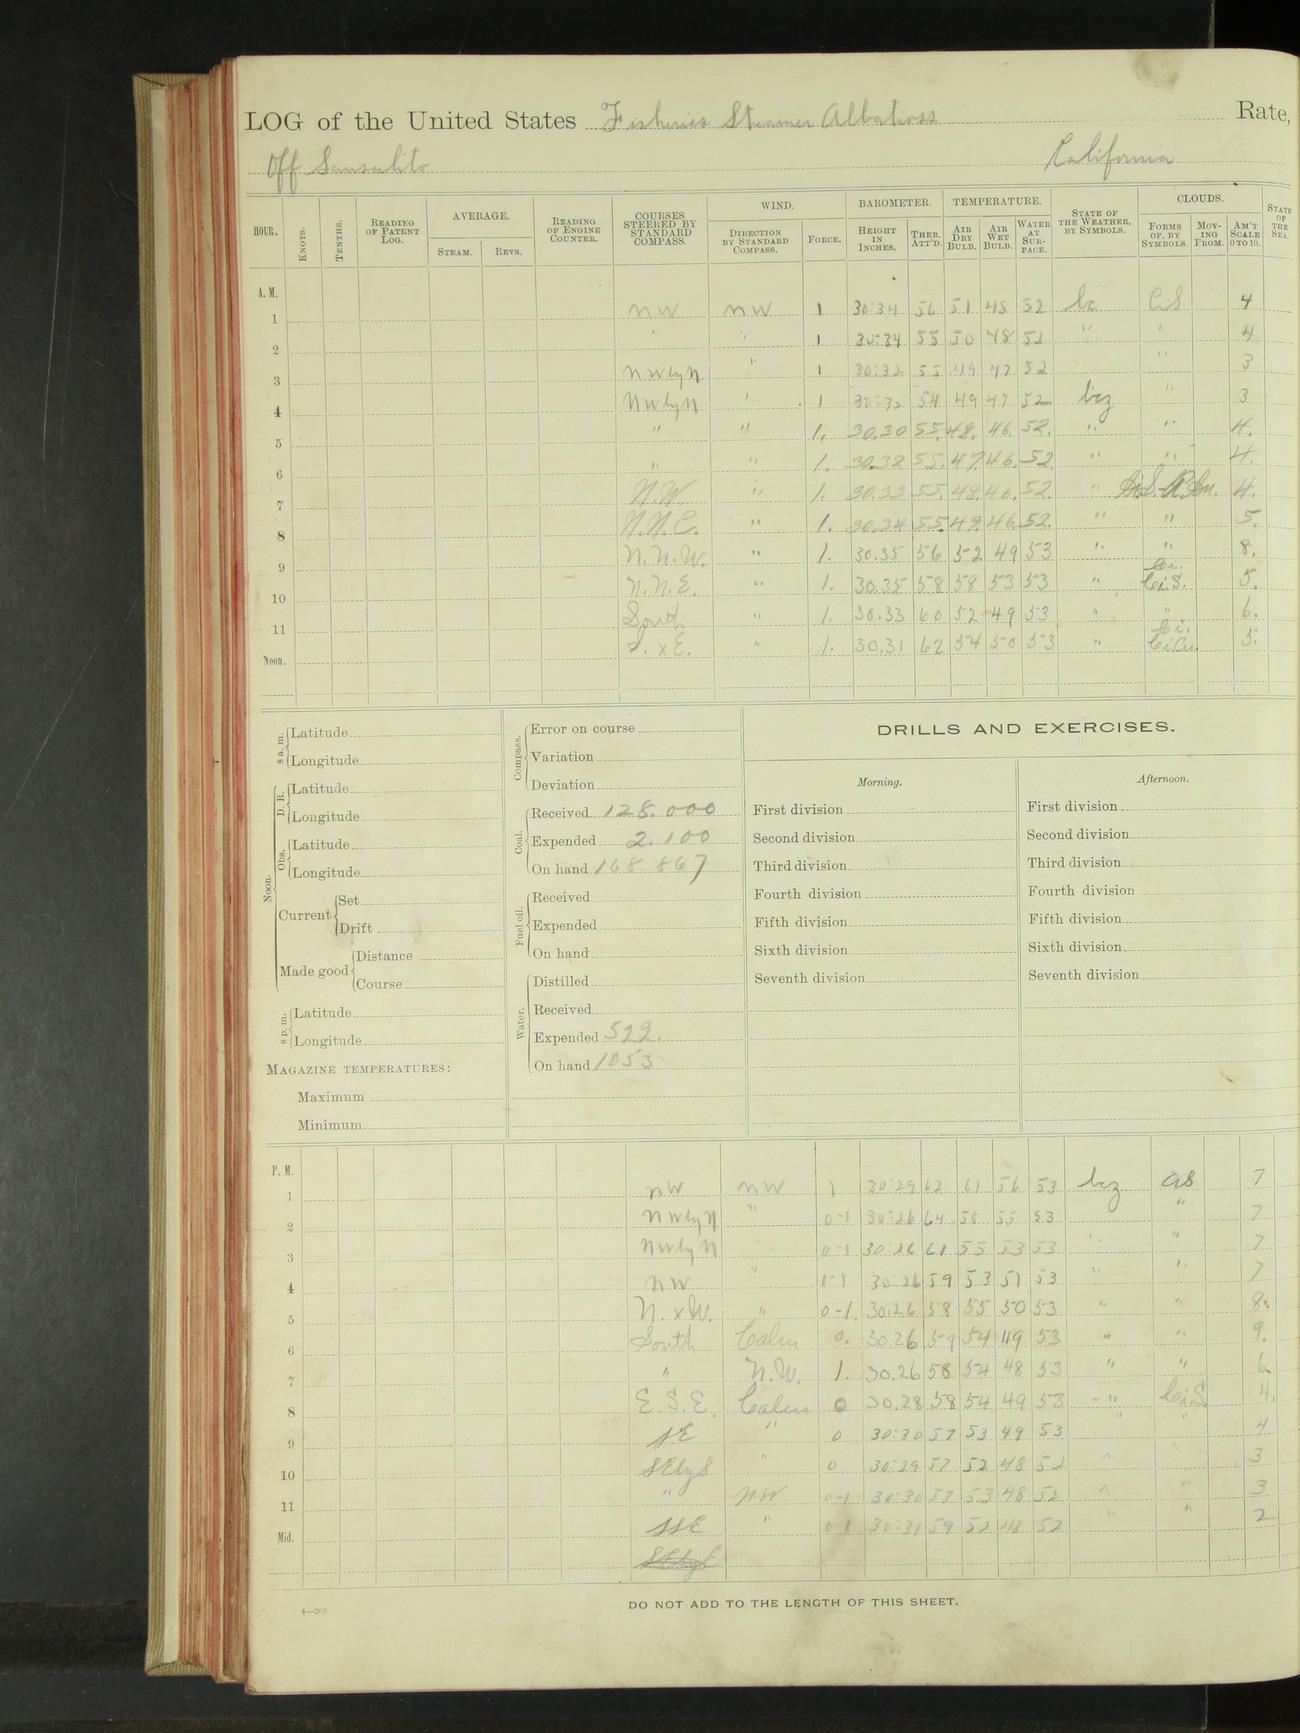 LOG of the United States Fisheries Steamer Albatross Rate,
Off Sausalito California
HOUR. KNOTS. TENTHS. READING OF PATENT LOG. AVERAGE. STEAM. REVS. READING OF ENGINE COUNTER. COURSES STEERED BY STANDARD COMPASS. WIND. DIRECTION BY STANDARD COMPASS. FORCE. BAROMETER. HEIGHT IN INCHES. THER. ATT'D. TEMPERATURE. AIR DRY BULB. AIR WET BULB. WATER AT SURFACE. STATE OF THE WEATHER, BY SYMBOLS. CLOUDS. FORMS OF, BY SYMBOLS. MOVING FROM. AM'T SCALE 0 TO 10. STATE OF THE SEA.
A. M.
1 NW NW 1 30:34 56 51 48 52 bc CiS 4
2 " " 1 30:34 55 50 48 52 " " 4
3 NWbyN " 1 30:32 55 49 47 52 " 3
4 NWbyN " 1 30:32 54 49 47 52 bcz " 3
5 " " 1. 30.30 55. 48. 46. 52. " " 4.
6 " " 1. 30.32 55. 47 46. 52 " " 4.
7 N.W. " 1. 30.33 55. 48. 46. 52. " 4.
8 N.N.E. " 1. 30.34 55 49. 46. 52. " " 5.
9 N.N.W. " 1. 30.35 56 52 49 53 " " 8.
10 N.N.E. " 1. 30.35 58 58 53 53 " Ci. CiS. 5.
11 South " 1. 30.33 60 52 49 53 " " 6.
Noon. S. x E. " 1. 30.31 62 54 50 53 " Ci. CiCu 5.
8 a. m. Latitude
Longitude
Noon. D. R. Latitude
Longitude
Obs. Latitude
Longitude
Current Set
Drift
Made good Distance
Course
8 p. m. Latitude
Longitude
MAGAZINE TEMPERATURES:
Maximum
Minimum
Compass. Error on course
Variation
Deviation
Coal. Received 128.000
Expended 2.100
On hand 168 867
Fuel oil. Received
Expended
On hand
Water. Distilled
Received
Expended 522.
On hand 1053
DRILLS AND EXERCISES.
Morning. Afternoon.
First division First division
Second division Second division
Third division Third division
Fourth division Fourth division
Fifth division Fifth division
Sixth division Sixth division
Seventh division Seventh division
P. M.
1 NW NW 1 30:29 62 61 56 53 bcz aS 7
2 NWbyN " 0-1 30:26 64 58 55 53 " 7
3 NWbyN " 0-1 30:26 61 55 53 53 " " 7
4 NW " 0-1 30:26 59 53 51 53 " " 7
5 N. x W. " 0-1. 30.26 58 55 50 53 " " 8.
6 South Calm 0. 30.26 59 54 49 53 " " 9.
7 " N.W. 1. 30.26 58 54 48 53 " " 6
8 E.S.E. Calm 0 30.28 58 54 49 53 " CiS. 4.
9 SE " 0 30:30 57 53 49 53 " " 4
10 SEbyS " 0 30:29 57 52 48 52 " " 3
11 " NW 0-1 30:30 57 53 48 52 " " 3
Mid. SSE " 0-1 30:31 59 52 48 52 " " 2
4—265
DO NOT ADD TO THE LENGTH OF THIS SHEET.